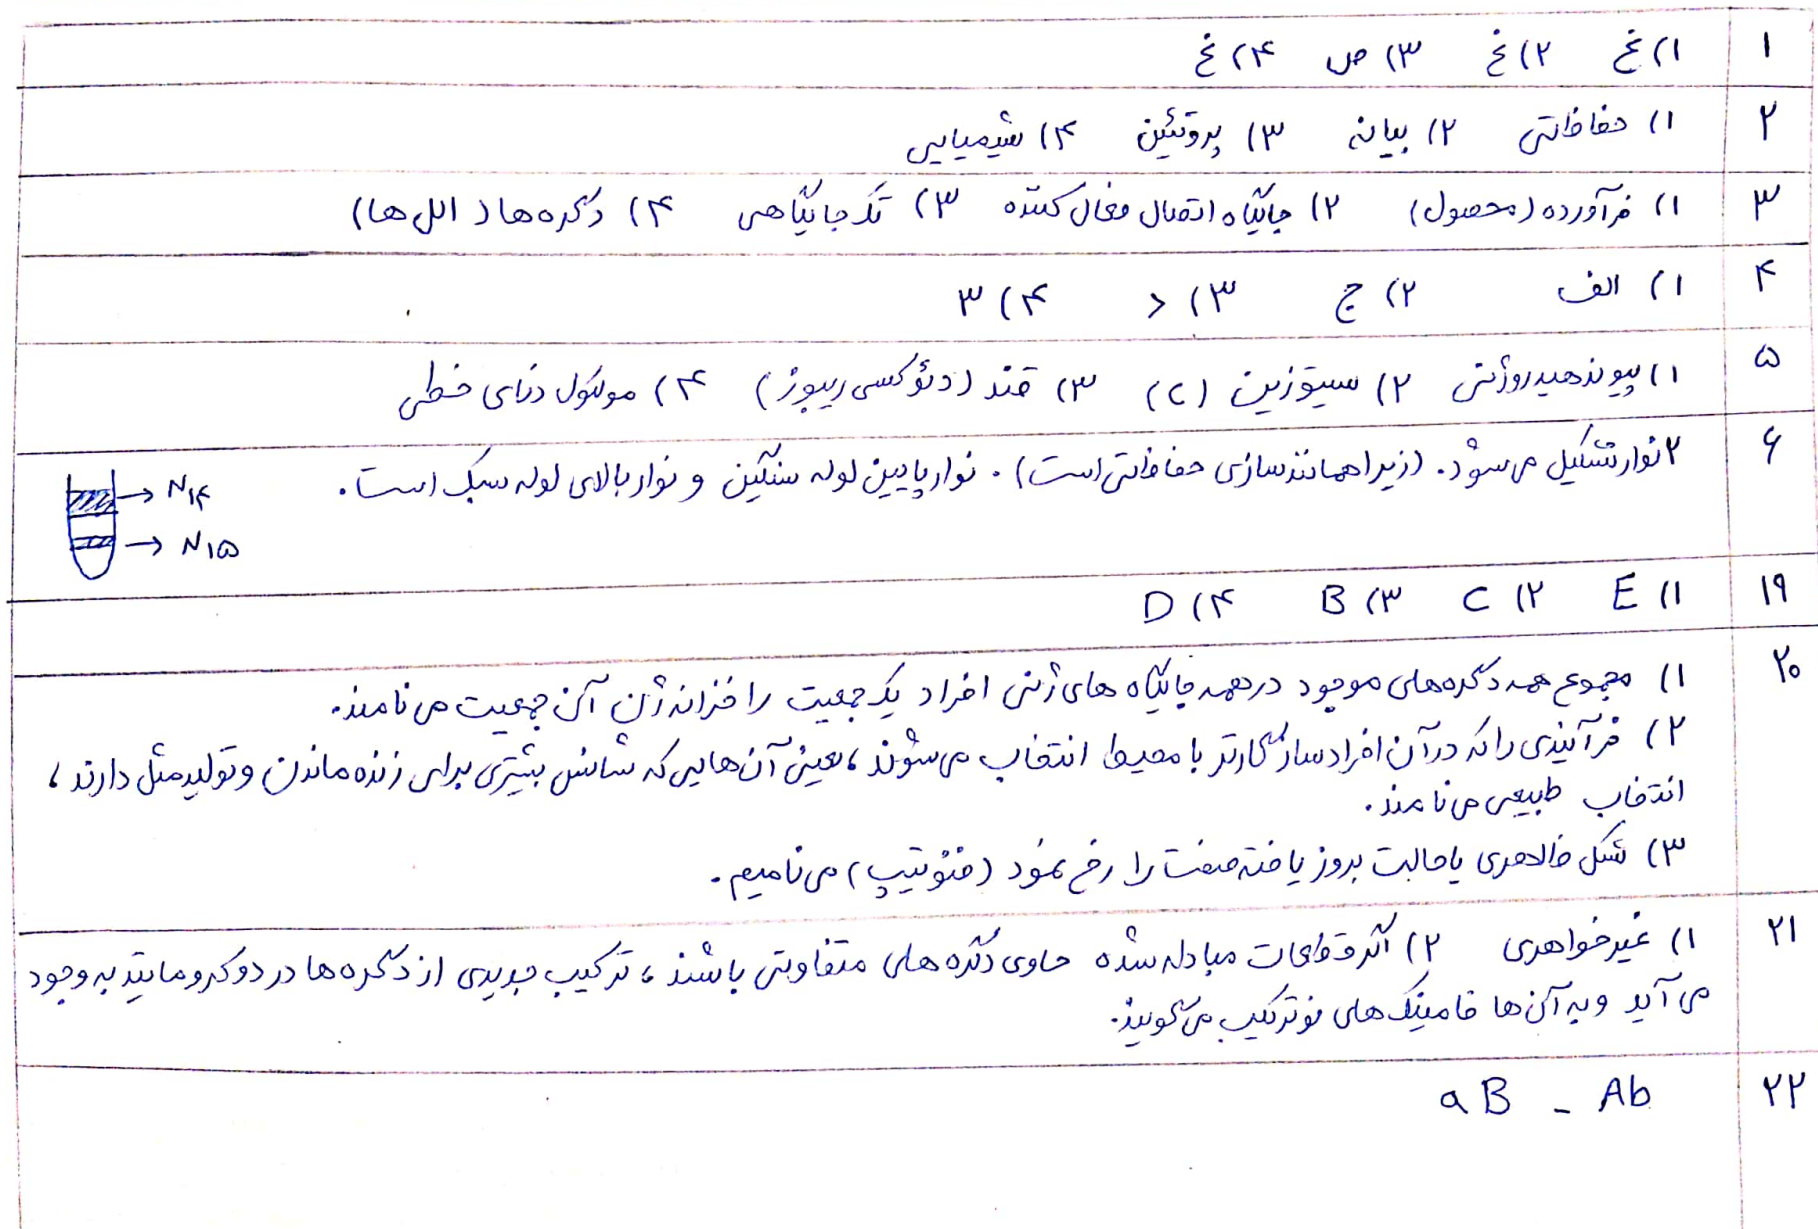 ۱ ۱) غ ۲) غ ۳) ص ۴) غ
۲ ۱) حفاظتی ۲) بیانه ۳) پروتئین ۴) شیمیایی
۳ ۱) فرآورده (محصول) ۲) جایگاه اتصال فعال کننده ۳) تک جایگاهی ۴) دگره ها (الل ها)
۴ ۱) الف ۲) ج ۳) د ۴) ۳
۵ ۱) پیوند هیدروژنی ۲) سیتوزین (C) ۳) قند (دئوکسی ریبوز) ۴) مولکول دنای خطی
۶ ۲ نوار تشکیل می شود. (زیرا همانندسازی حفاظتی است). نوار پایین لوله سنگین و نوار بالای لوله سبک است.
N۱۴
N۱۵
۱۹ ۱) E ۲) C ۳) B ۴) D
۲۰ ۱) مجموع همه دگره های موجود در همه جایگاه های ژنی افراد یک جمعیت را خزانه ژن آن جمعیت می نامند.
۲) فرآیندی را که در آن افراد سازگارتر با محیط انتخاب می شوند، یعنی آن هایی که شانس بیشتری برای زنده ماندن و تولید مثل دارند،
انتخاب طبیعی می نامند.
۳) شکل ظاهری یا حالت بروز یافته صفت را رخ نمود (فنوتیپ) می نامیم.
۲۱ ۱) غیرخواهری ۲) اگر قطعات مبادله شده حاوی دگره های متفاوتی باشند، ترکیب جدیدی از دگره ها در دو کروماتید به وجود
می آید و به آن ها گامینک های نوترکیب می گویند.
۲۲ aB - Ab